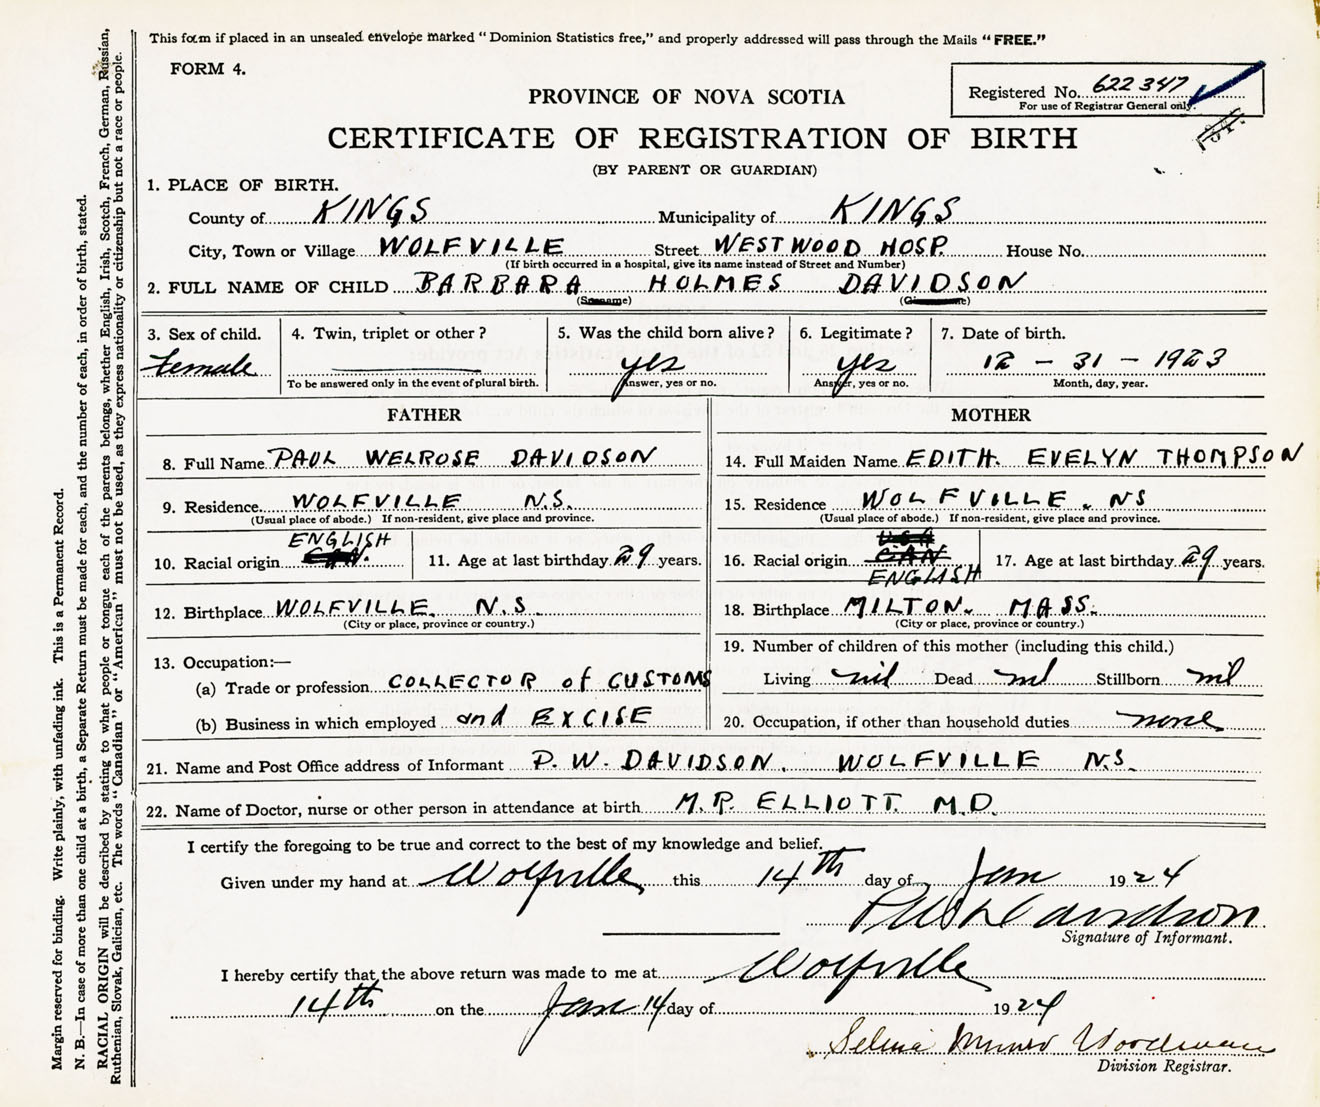 This form if placed in an unsealed envelope marked “Dominion Statistics free,” and properly addressed will pass through the Mails “FREE.”
FORM 4.
Registered No. 622347
For use of Registrar General only.
PROVINCE OF NOVA SCOTIA
CERTIFICATE OF REGISTRATION OF BIRTH
(BY PARENT OR GUARDIAN)
1. PLACE OF BIRTH.
County of KINGS Municipality of KINGS
City, Town or Village WOLFVILLE Street WESTWOOD HOSP. House No.
(If birth occurred in a hospital, give its name instead of Street and Number)
2. FULL NAME OF CHILD BARBARA HOLMES DAVIDSON
(Surname)
3. Sex of child. 4. Twin, triplet or other? 5. Was the child born alive? 6. Legitimate? 7. Date of birth.
Female yes yes 12 - 31 - 1923
To be answered only in the event of plural birth. Answer, yes or no. Answer, yes or no. Month, day, year.
FATHER
8. Full Name PAUL WELROSE DAVIDSON
9. Residence WOLFVILLE N.S.
(Usual place of abode.) If non-resident, give place and province.
ENGLISH
10. Racial origin CAN. 11. Age at last birthday 29 years.
12. Birthplace WOLFVILLE N.S.
(City or place, province or country.)
13. Occupation:—
(a) Trade or profession COLLECTOR of CUSTOMS
(b) Business in which employed and EXCISE
MOTHER
14. Full Maiden Name EDITH EVELYN THOMPSON
15. Residence WOLFVILLE. NS
(Usual place of abode.) If non-resident, give place and province.
USA
16. Racial origin CAN 17. Age at last birthday 29 years.
ENGLISH
18. Birthplace MILTON. MASS.
(City or place, province or country.)
19. Number of children of this mother (including this child.)
Living nil Dead nil Stillborn nil
20. Occupation, if other than household duties none
21. Name and Post Office address of Informant P. W. DAVIDSON. WOLFVILLE N.S.
22. Name of Doctor, nurse or other person in attendance at birth M.R. ELLIOTT. M.D.
I certify the foregoing to be true and correct to the best of my knowledge and belief.
Given under my hand at Wolfville this 14th day of Jan 1924
PW Davidson
Signature of Informant.
I hereby certify that the above return was made to me at Wolfville
14th on the Jan 14 day of 1924
Selina Munro Woodman
Division Registrar.
Margin reserved for binding. Write plainly, with unfading ink. This is a Permanent Record.
N. B.—In case of more than one child at a birth, a Separate Return must be made for each, and the number of each, in order of birth, stated.
RACIAL ORIGIN will be described by stating to what people or tongue each of the parents belongs, whether English, Irish, Scotch, French, German, Russian,
Ruthenian, Slovak, Galician, etc. The words “Canadian” or “American” must not be used, as they express nationality or citizenship but not a race or people.